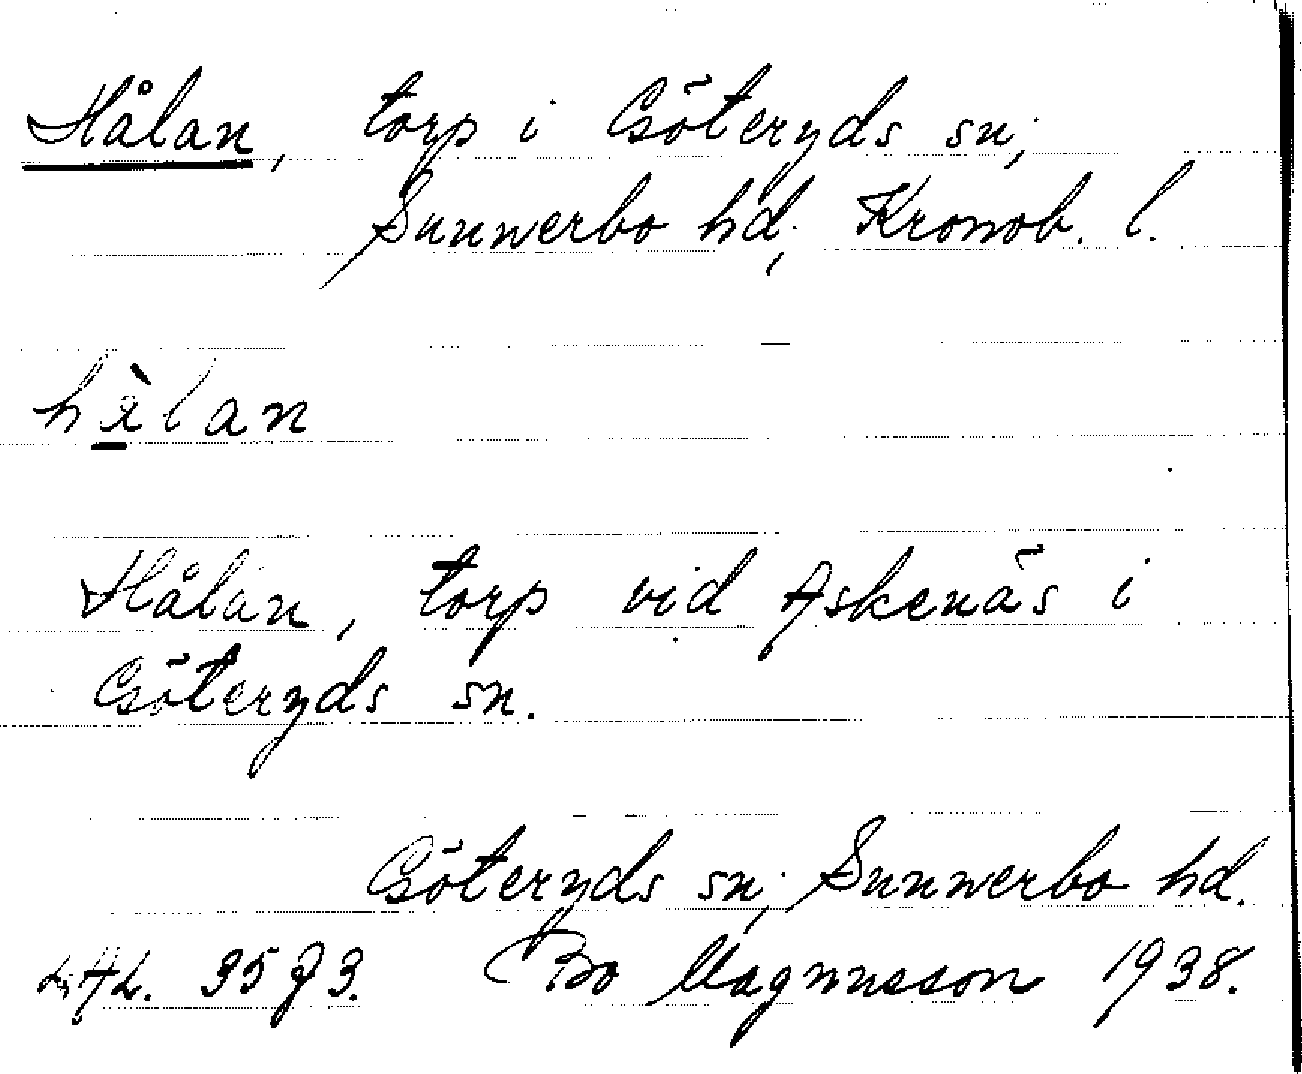 Hålan, torp i Göteryds sn,
Sunnerbo hd, Kronob. l.
hålan
Hålan, torp vid Askenäs i
Göteryds sn.
Göteryds sn, Sunnerbo hd.
Bo Magnusson 1938.